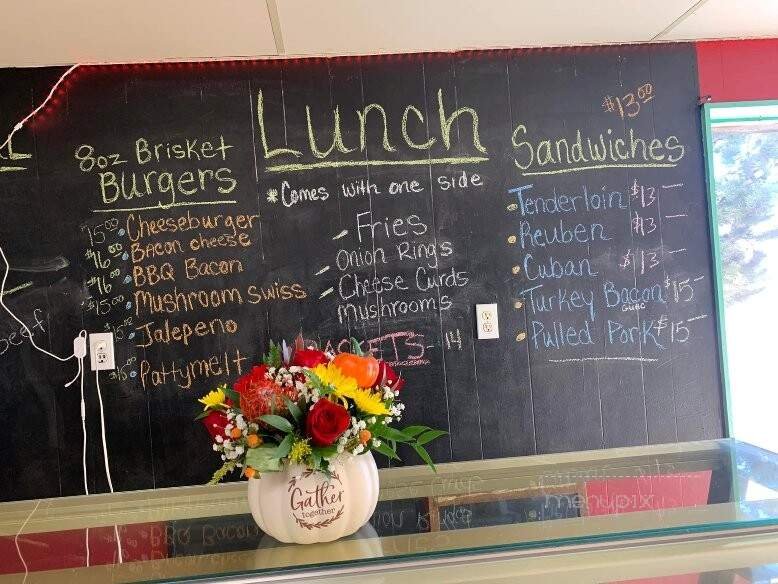 8oz Brisket
Burgers
15.00 • Cheeseburger
$16.00 • Bacon cheese
$16.00 • BBQ Bacon
$15.00 • Mushroom Swiss
Jalepeno
Pattymelt
Lunch
* Comes with one side
- Fries
- Onion Rings
- Cheese Curds
Mushrooms
14
$13.00
Sandwiches
• Tenderloin $13 -
• Reuben $13 -
• Cuban $13 -
• Turkey Bacon $15 -
Guac
• Pulled Pork $15 -
Gather
together
menupix